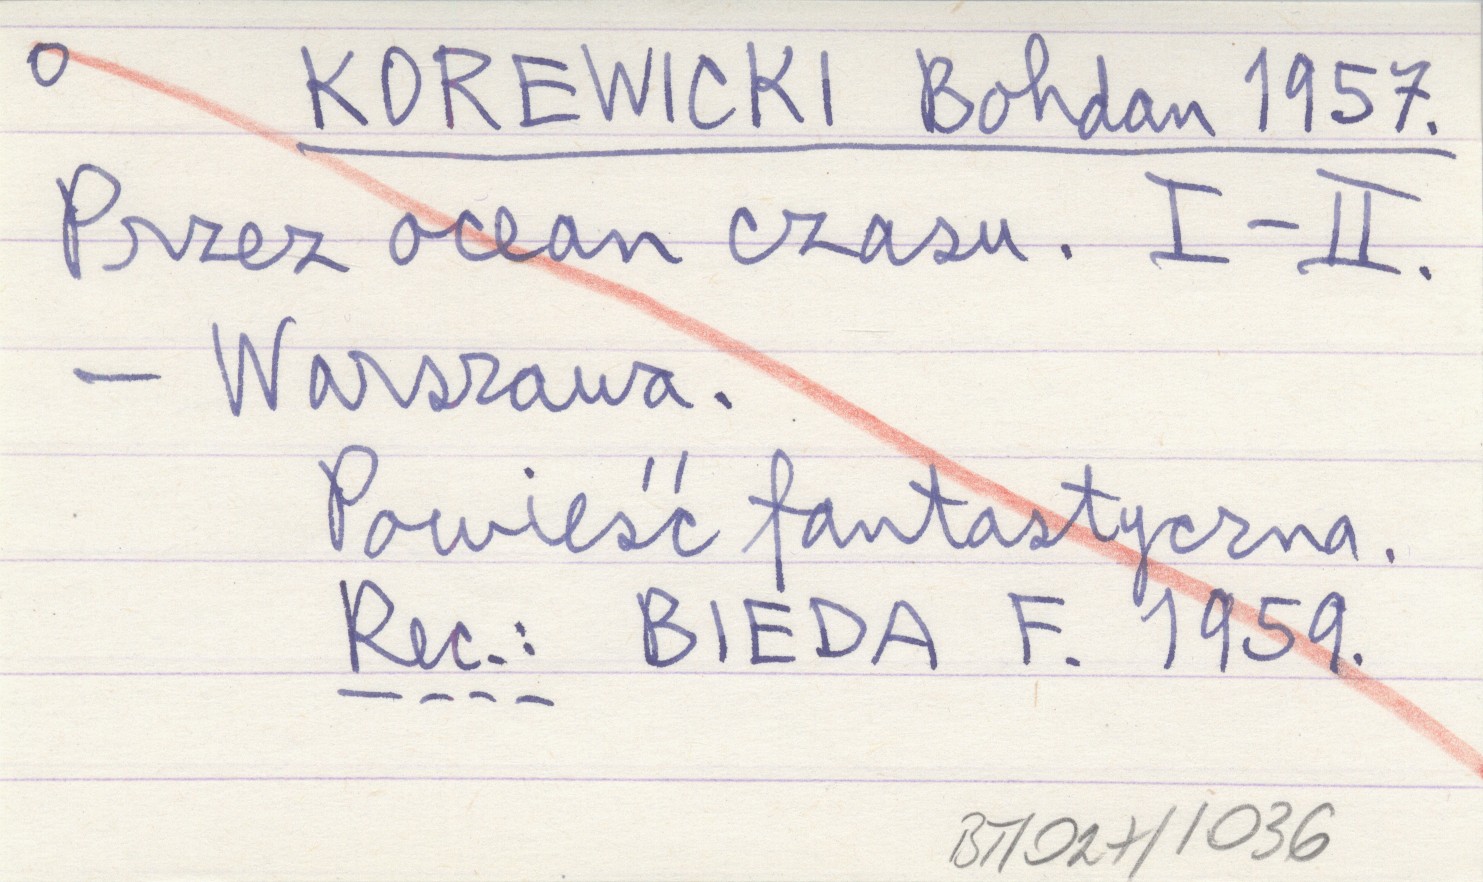 o KOREWICKI Bohdan 1957.
Przez ocean czasu. I–II.
– Warszawa.
Powieść fantastyczna.
Rec.: BIEDA F. 1959.
BT/027/1036